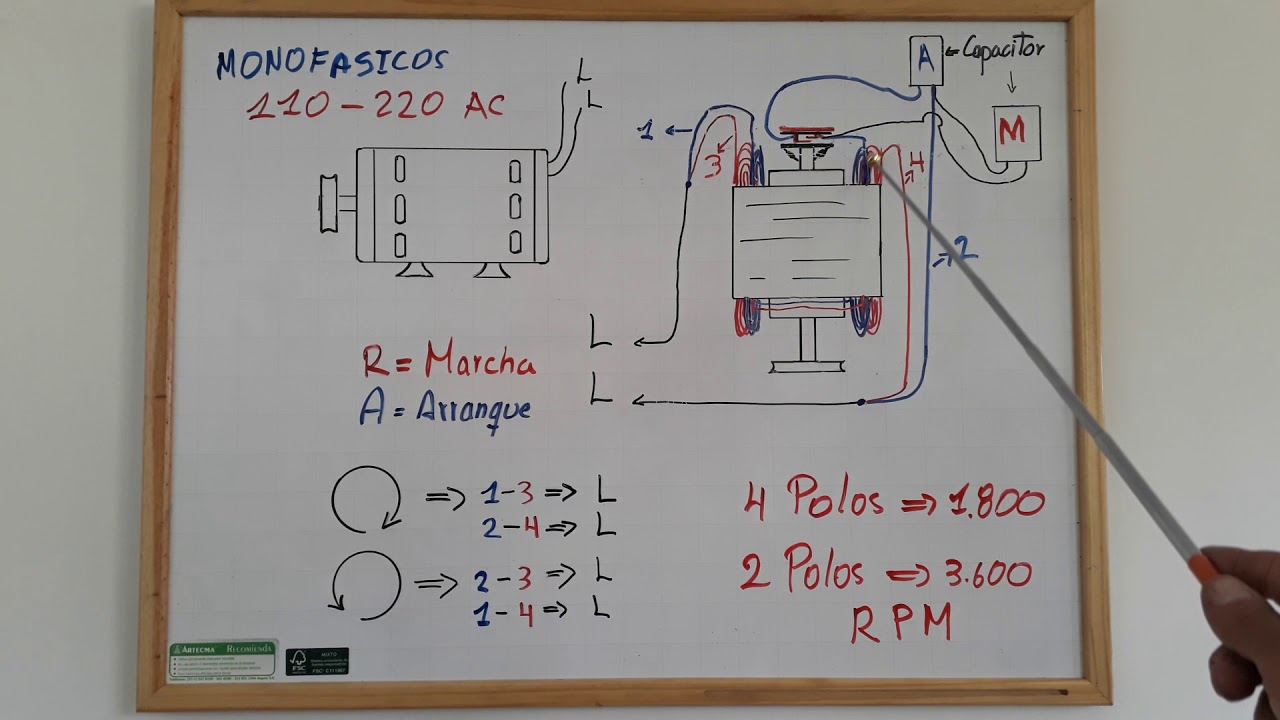 MONOFASICOS
110-220 AC
L
L
A ⇐ Capacitor
M
1
3
4
2
L
L
R = Marcha
A = Arranque
⇒ 1-3 ⇒ L
2-4 ⇒ L
⇒ 2-3 ⇒ L
1-4 ⇒ L
4 Polos ⇒ 1.800
2 Polos ⇒ 3.600
RPM
ARTECMA RECOMIENDA
FSC
MIXTO